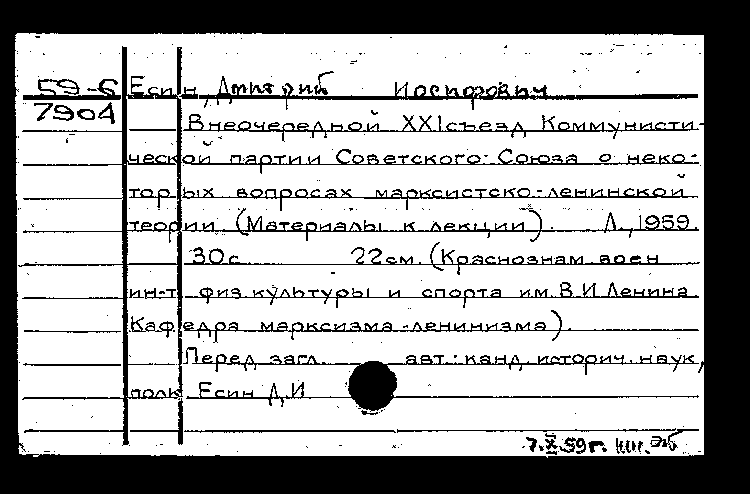 59-6 Есин, Дмитрий Иосифович
7904
Внеочередной XXI съезд Коммунисти-
ческой партии Советского Союза о неко-
торых вопросах марксистско-ленинской
теории. (Материалы к лекции). Л., 1959.
30 с. 22 см. (Краснознам. воен.
ин-т физ. культуры и спорта им. В.И. Ленина.
Кафедра марксизма-ленинизма).
Перед загл. авт.: канд. историч. наук,
полк. Есин Д.И.
7.X.59 г.